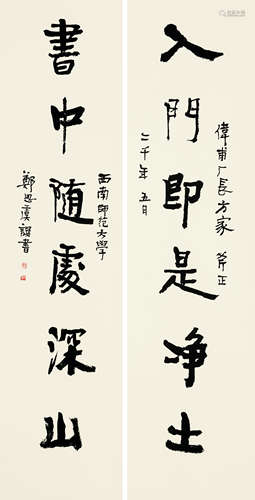 入門即是净土
偉甫厂長方家 斧正
二千年 五月
書中隨處深山
西南师范大學
鄭思虞題書